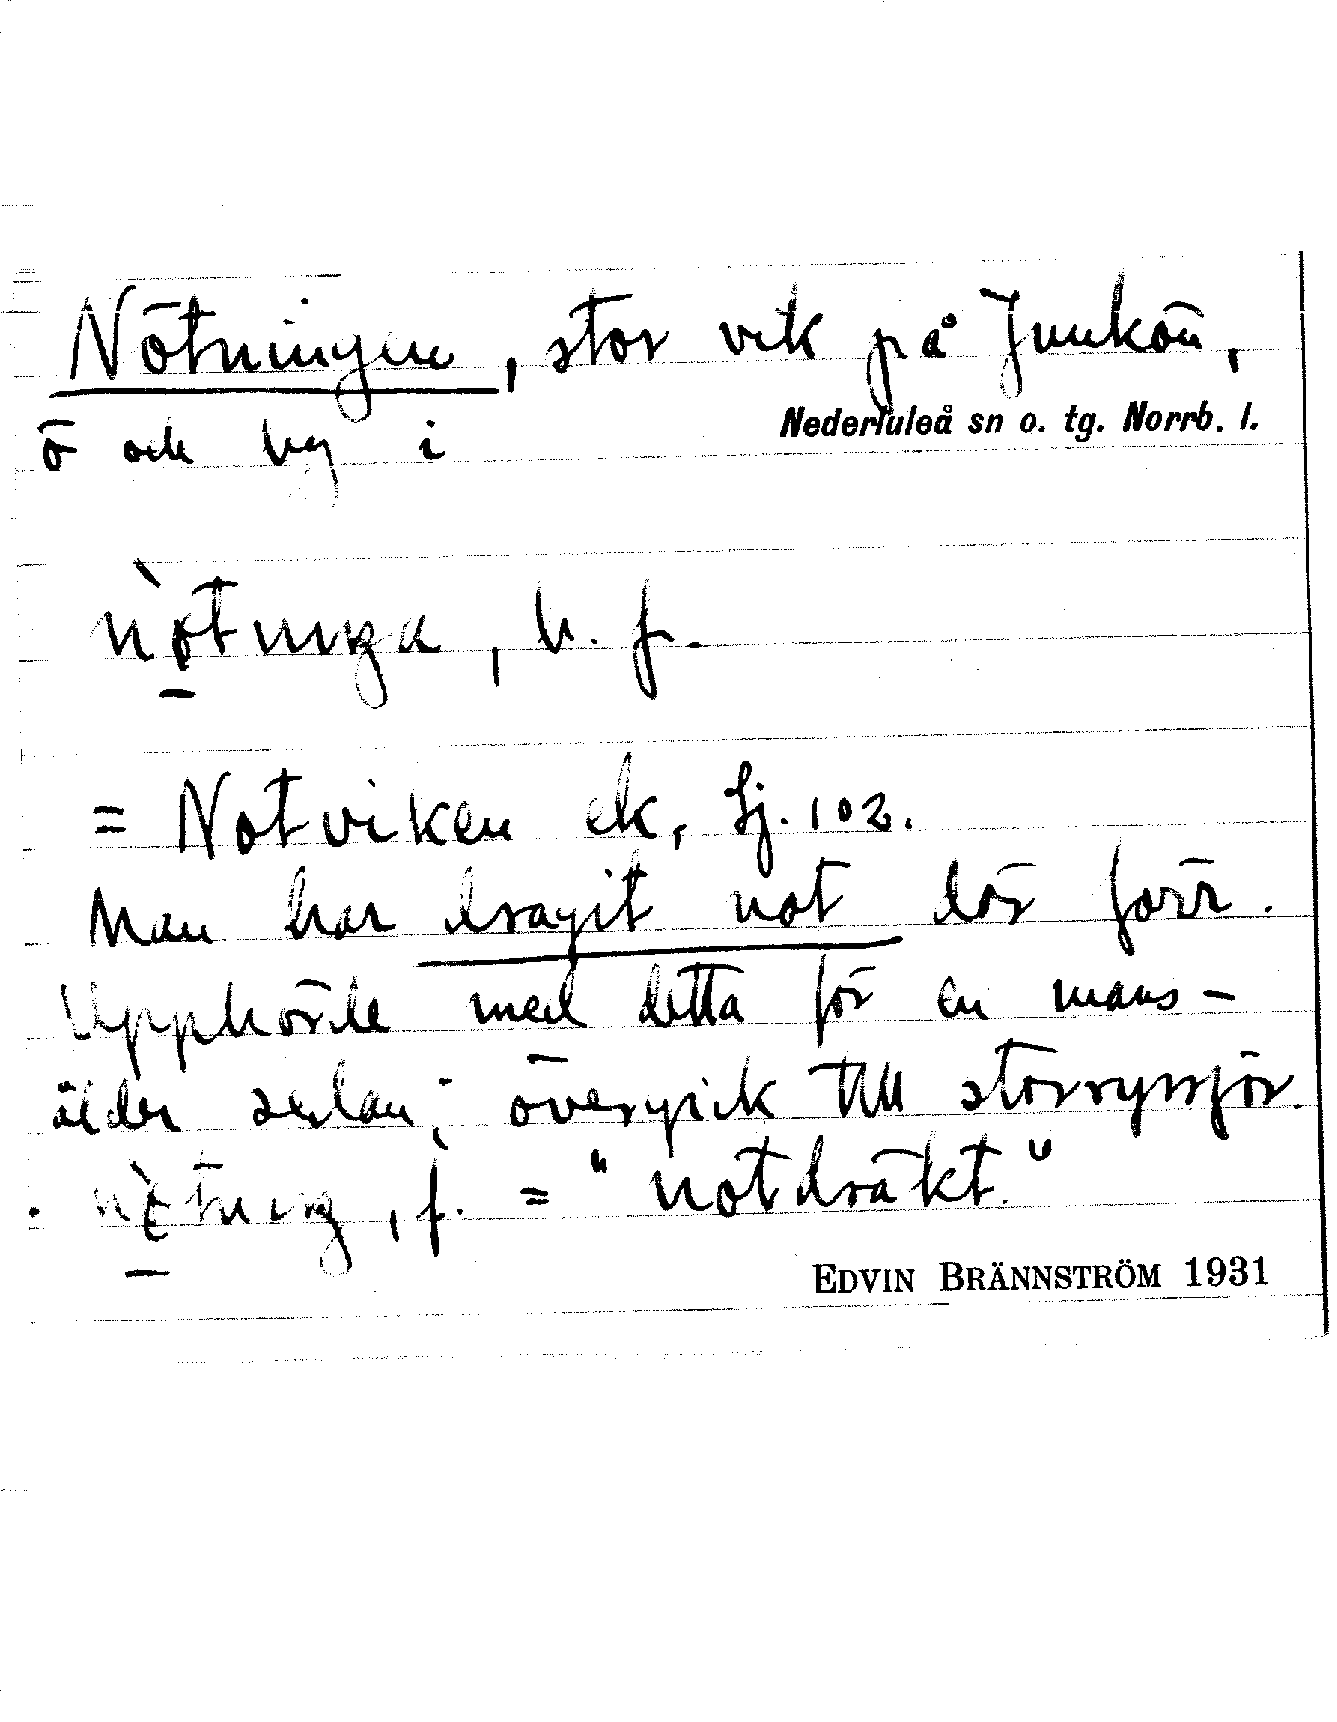 Nötningen, stor vik på Junkön,
ö och by i Nederluleå sn o. tg. Norrb. l.
nòtnıŋa, b. f.
= Notviken ek, Sj. 102.
Man har dragit not där förr.
Upphörde med detta för en mans-
ålder sedan; övergick till storryssjor.
nòtnıŋ, f. = "notdräkt."
EDVIN BRÄNNSTRÖM 1931